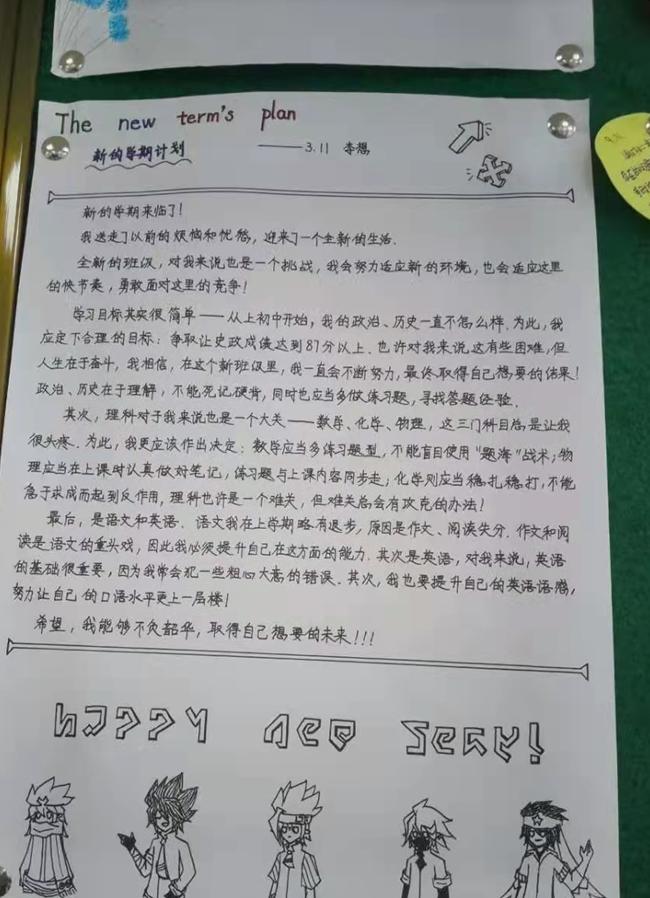 The new term's plan
新的学期计划 ——3.11 李想
新的学期来临了!
我送走了以前的烦恼和忧愁,迎来了一个全新的生活.
全新的班级,对我来说也是一个挑战,我会努力适应新的环境,也会适应这里
的快节奏,勇敢面对这里的竞争!
学习目标其实很简单——从上初中开始,我的政治、历史一直不怎么样.为此,我
应定下合理的目标:争取让史政成绩达到87分以上.也许对我来说这有些困难,但
人生在于奋斗,我相信,在这个新班级里,我一直会不断努力,最终取得自己想要的结果!
政治、历史在于理解,不能死记硬背,同时也应当多做练习题,寻找答题经验.
其次,理科对于我来说也是一个大关——数学、化学、物理,这三门科目总是让我
很头疼.为此,我更应该作出决定:数学应当多练习题型,不能盲目使用"题海"战术;物
理应当在上课时认真做好笔记,练习题与上课内容同步走;化学则应当稳扎稳打,不能
急于求成而起到反作用,理科也许是一个难关,但难关总会有攻克的办法!
最后,是语文和英语.语文我在上学期略有退步,原因是作文、阅读失分.作文和阅
读是语文的重头戏,因此我必须提升自己在这方面的能力.其次是英语,对我来说,英语
的基础很重要,因为我常会犯一些粗心大意的错误.其次,我也要提升自己的英语语感,
努力让自己的口语水平更上一层楼!
希望,我能够不负韶华,取得自己想要的未来!!!